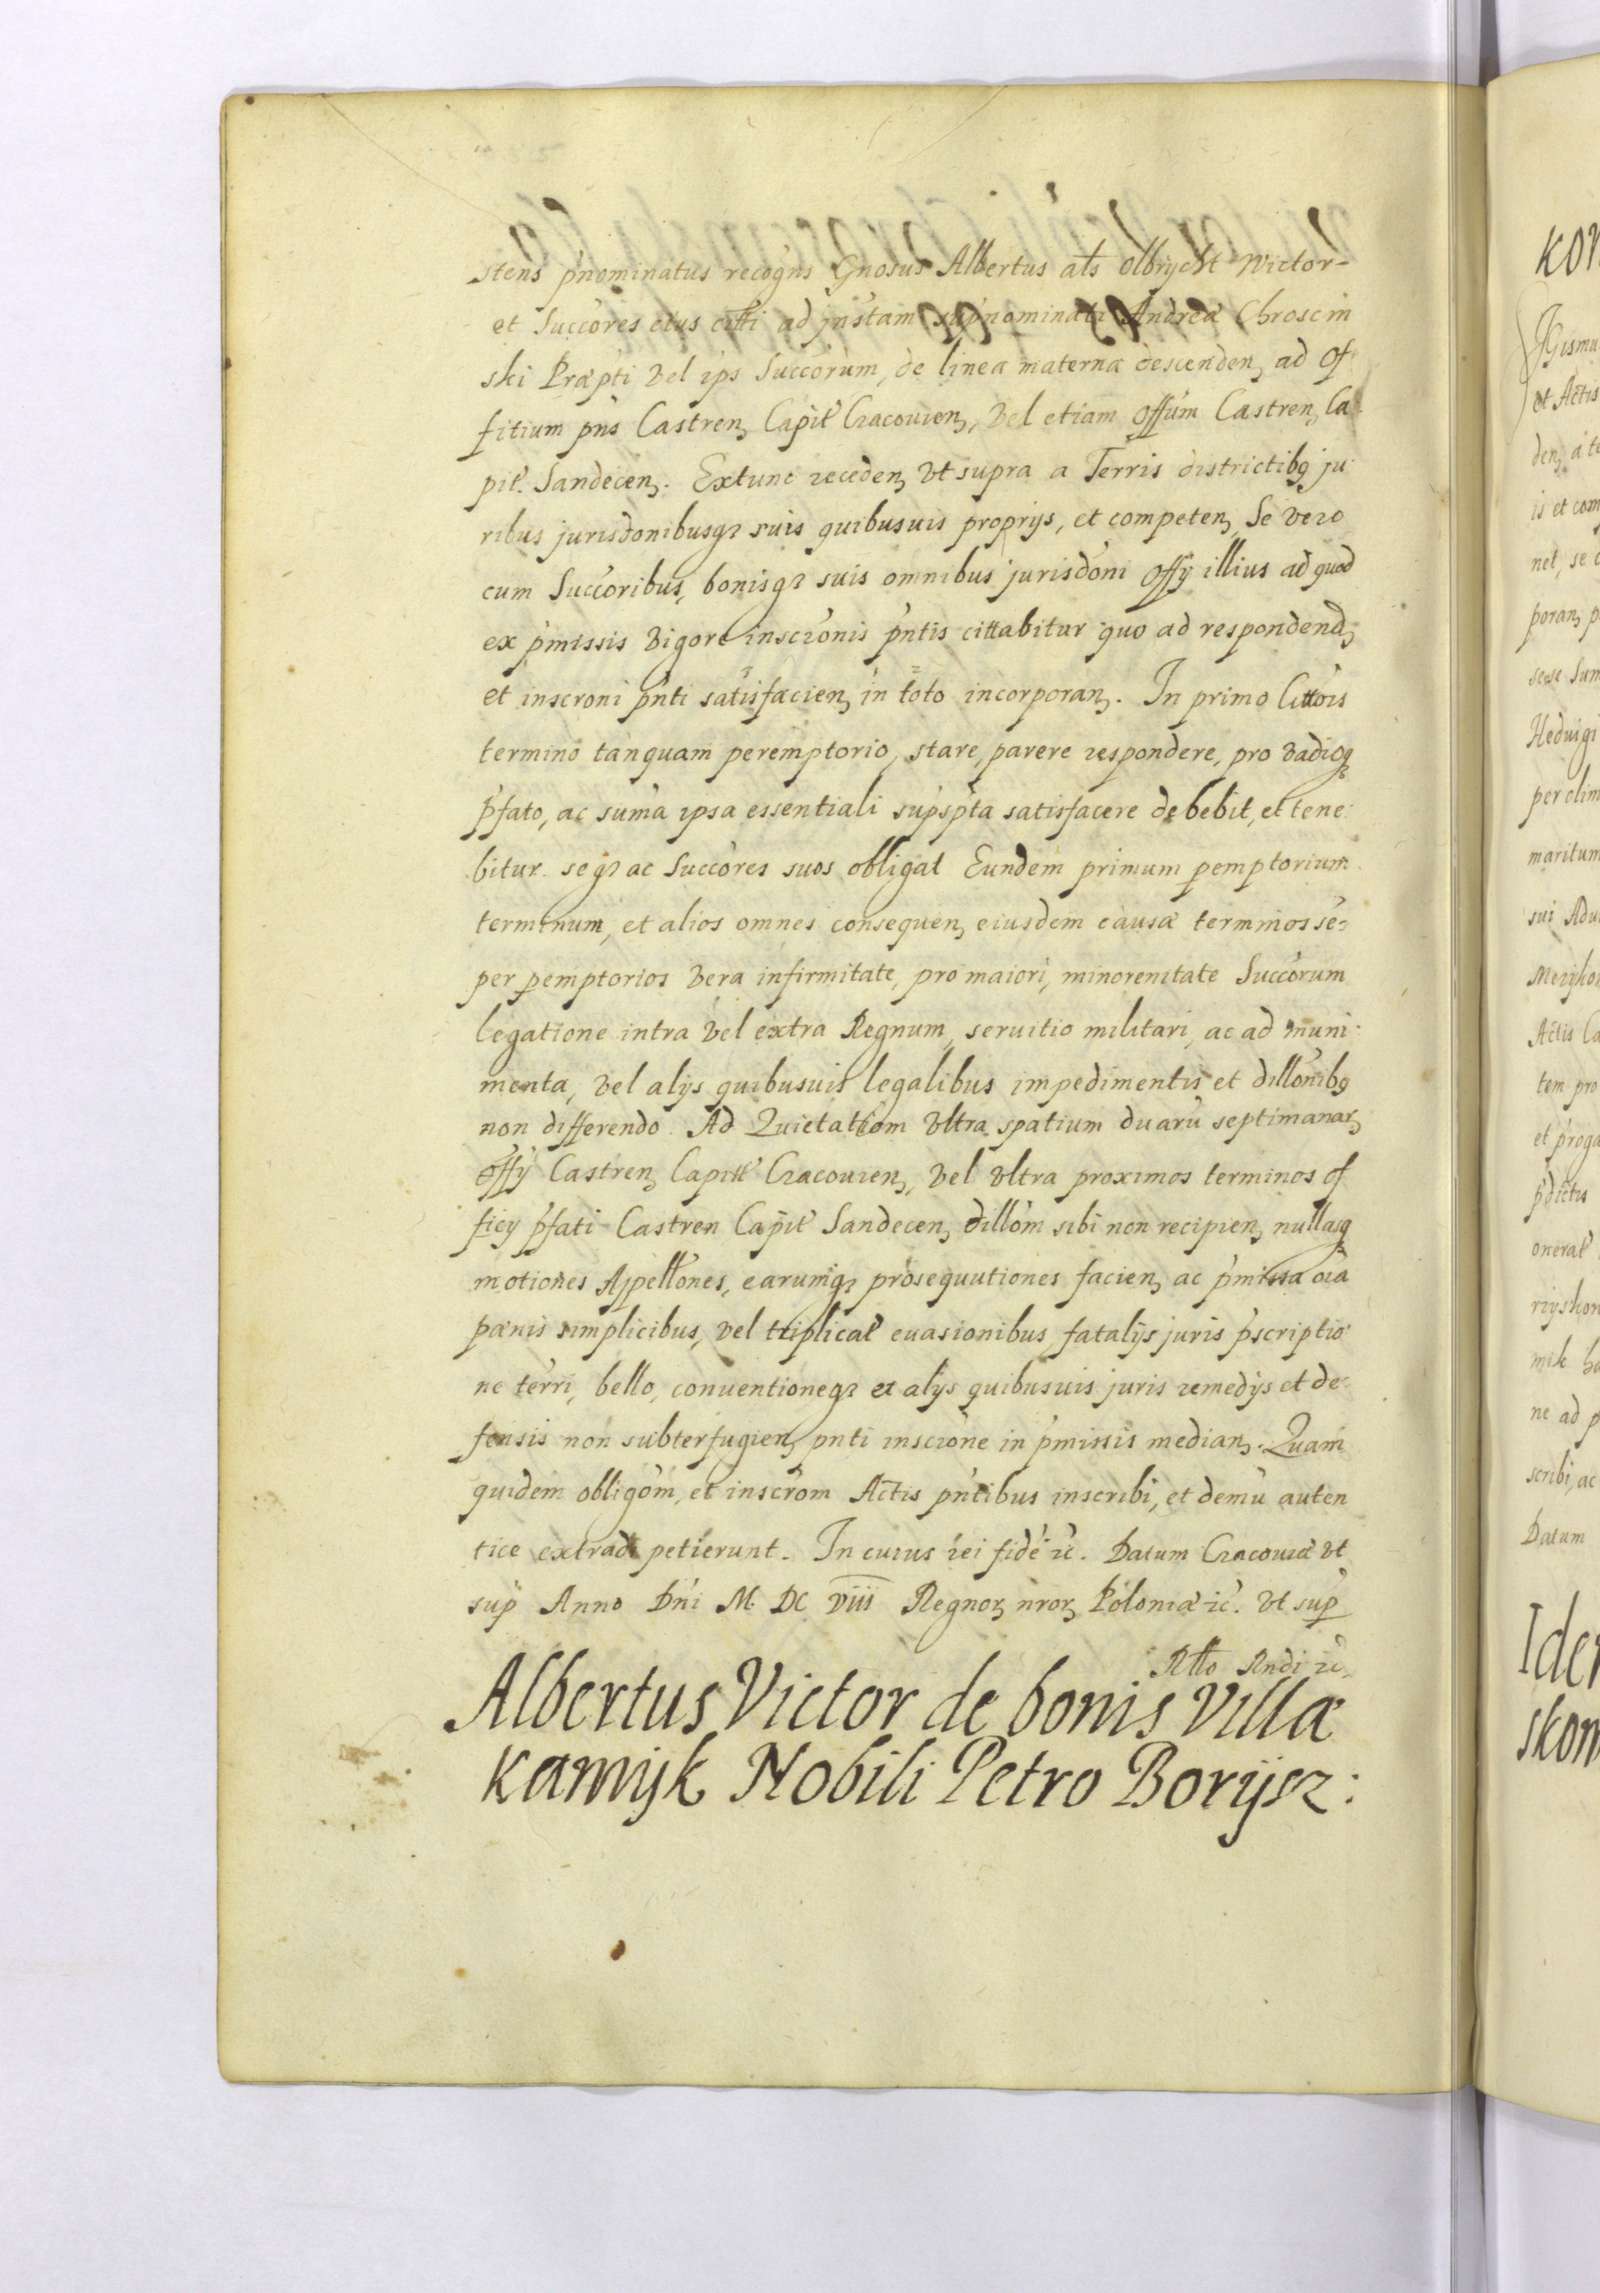 stens pñominatus recogñs Gñosus Albertus als Olbrycht Wictor
et Succores eius citti ad jnstam supñominati Andreæ Chroscin
ski Præpti vel ips Succorum, de linea materna descenden, ad of
fitium pñs Castren, Capit Cracouien, vel etiam offum Castren, Ca
pit. Sandecen. Extunc receden, vt supra a Terris districtibq ju
ribus jurisdonibusq suis quibusuis proprijs, et competen, Se vero
cum Succoribus, bonisq suis omnibus jurisdoni offij illius ad quod
ex pmissis vigore inscronis pntis cittabitur quo ad respondend,
et inscroni pnti satisfacien, in toto incorporan. In primo Cittois
termino tanquam peremptorio, stare, parere respondere, pro vadioq
pfato, ac suma ipsa essentiali supspta satisfacere debebit, et tene
bitur seq ac Succores suos obligat Eundem primum pemptorium
terminum, et alios omnes consequen, eiusdem causæ terminos se=
per pemptorios vera infirmitate, pro maiori, minorenitate Succorum
legatione intra vel extra Regnum, seruitio militari, ac ad muni
menta, vel alijs quibusuis legalibus impedimentis et dillonibq
non differendo. Ad Quietatiom vltra spatium duarũ septimanar,
offij Castren, Capitt Cracouien, vel vltra proximos terminos of
ficij pfati Castren Capit Sandecen, dillom sibi non recipien, nullasq
motiones Appellones, earumq prosequutiones facien, ac pmissa oia
pænis simplicibus, vel triplicat euasionibus, fatalijs juris pscriptio
ne terri, bello, conuentioneq et alijs quibusuis juris remedijs et de
fensis non subterfugien, pnti inscrone in pmissis median. Quam
quidem obligom, et inscrom Actis pntibus inscribi, et demũ auten
tice extradi petierunt. In cuius rei fidẽ ic. Datum Cracouiæ vt
sup Anno Dñi M. DC VIII Regnor, nror, Poloniæ ic. vt sup
Rtto Andi ic.
Albertus Victor de bonis Villæ
Kamyk Nobili Petro Borijsz: